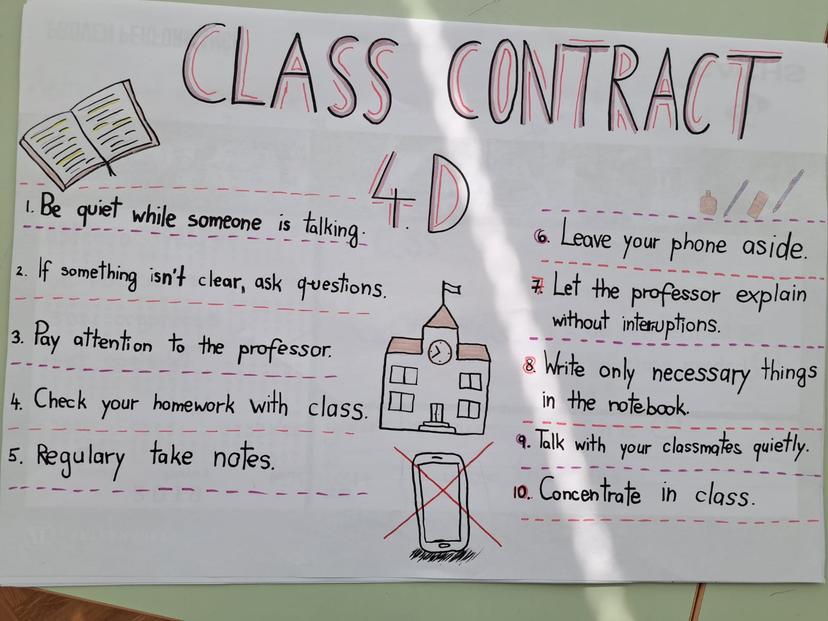 CLASS CONTRACT
4.D
1. Be quiet while someone is talking.
2. If something isn't clear, ask questions.
3. Pay attention to the professor.
4. Check your homework with class.
5. Regulary take notes.
6. Leave your phone aside.
7. Let the professor explain
without interruptions.
8. Write only necessary things
in the notebook.
9. Talk with your classmates quietly.
10. Concentrate in class.